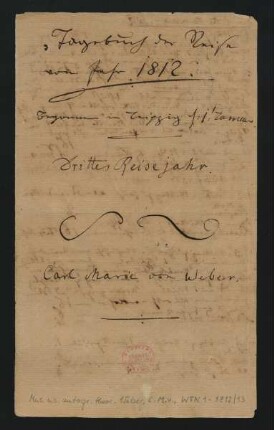 "Tagebuch der Reise
vom Jahr 1812:
Begonnen in Leipzig d: 1t
Drittes Reisejahr.
Carl Marie von Weber.
Mus. ms. autogr. theor. Weber, C. M. v., WFN 1 - 1812/13